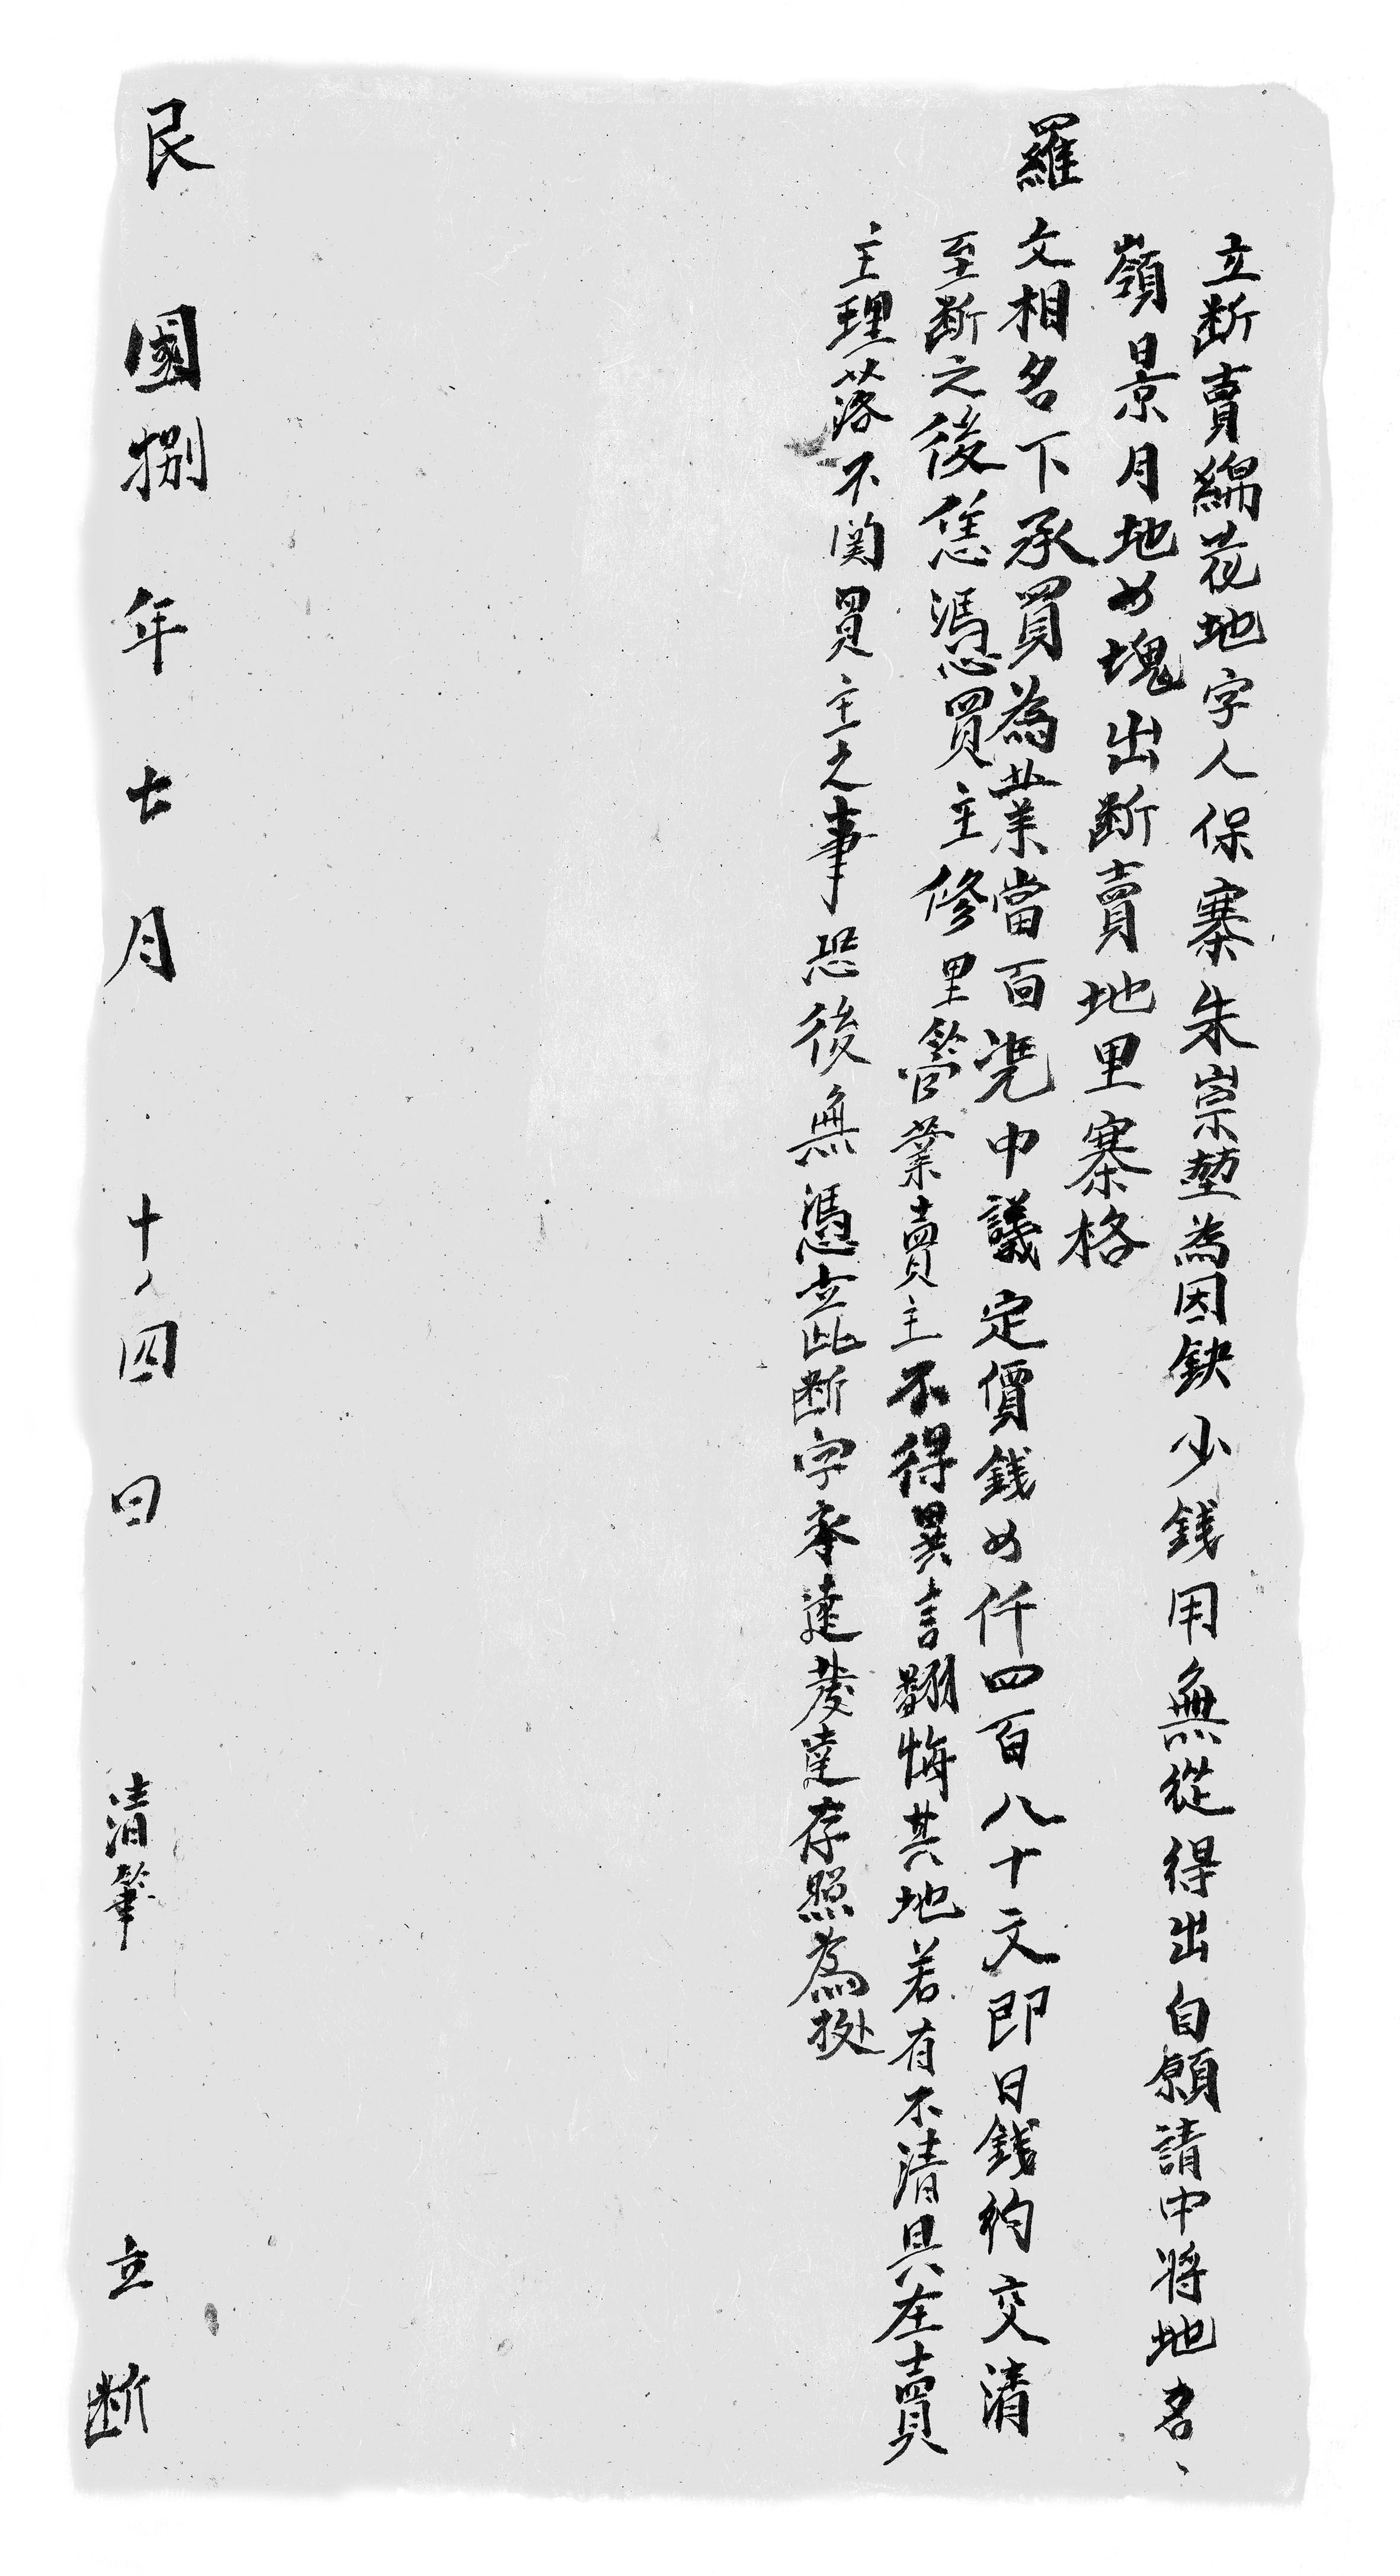 立断賣綿花地字人保寨朱崇堃為因缺少錢用無從得出自願請中將地名、
嶺景月地乄塊出断賣地里寨格
羅文相名下承買為業當百凭中議定價錢乄仟四百八十文即日錢約交清
至断之後恁憑買主修里管業賣主不得異言翻悔其地若有不清具在賣
主理落不関買主之事恐後無憑立此断字承遠發達存照為據
民國捌年七月十、四日 清筆 立断